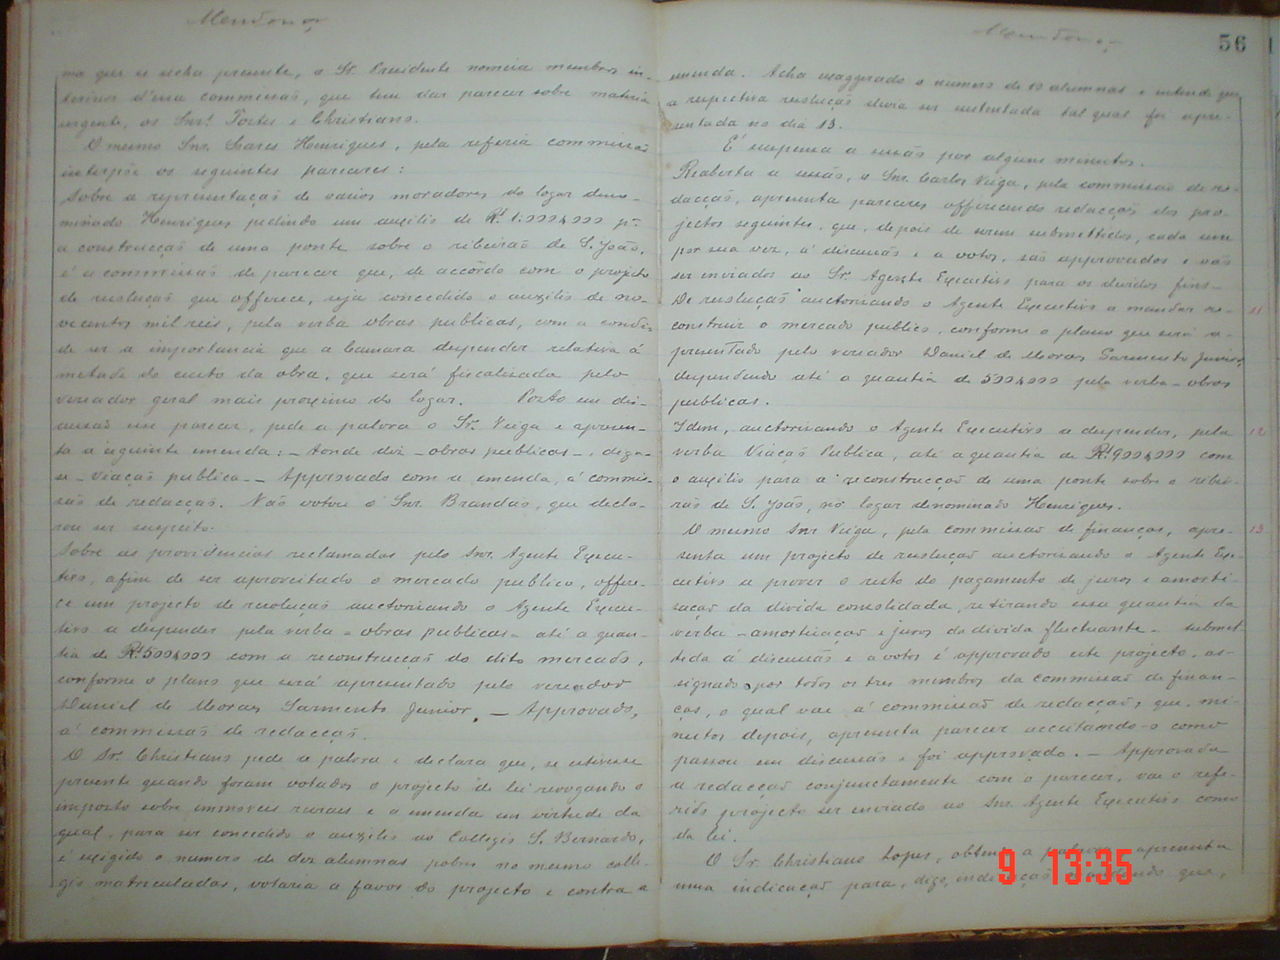 Mendonça
ma que se acha presente, o Sr. Presidente nomeia membros in-
terinos d'uma commissão, que tem dar parecer sobre materia
urgente, os Snrs. Porto e Christiano.
O mesmo Snr. Soares Henriques, pela referia commissão
interpõe os seguintes pareceres:
Sobre a representação de varios moradores do logar deno-
minado Henriques pedindo um auxilio de Rs. 1:000$000 pa.
a construcção de uma ponte sobre o ribeirão de S. João,
é a commissão de parecer que, de accôrdo com o projecto
de resolução que offerece, seja concedido o auxilio de no-
vecentos mil reis, pela verba obras publicas, com a condição
de ser a importancia que a Camara despender relativa á
metade do custo da obra, que será fiscalisada pelo
vereador geral mais proximo do logar. Posto em dis-
cussão esse parecer, pede a palavra o Sr. Veiga e apresen-
ta a seguinte emenda: - Aonde diz - obras publicas -, diga-
se - Viação publica. - Approvado com a emenda, á commis-
são de redacção. Não votou o Snr. Brandão, que decla-
rou ser suspeito.
Sobre as providencias reclamadas pelo Snr. Agente Execu-
tivo, afim de ser aproveitado o mercado publico, offere-
ce um projecto de resolução auctorisando o Agente Execu-
tivo a despender pela verba - obras publicas - até a quan-
tia de Rs. 500$000 com a reconstrucção do dito mercado,
conforme o plano que será apresentado pelo vereador
Daniel de Moraes Sarmento Junior. - Approvado,
á commissão de redacção.
O Sr. Christiano pede a palavra e declara que, se estivesse
presente quando foram votados o projecto de lei revogando o
imposto sobre immoveis ruraes e a emenda em virtude da
qual, para ser concedido o auxilio ao Collegio S. Bernardo,
é exigido o numero de dez alumnas pobres no mesmo colle-
gio matriculadas, votaria a favor do projecto e contra a
Mendonça
56
emenda. Acha exaggerado o numero de 10 alumnas e entende que
a respectiva resolução devia ser sustentada tal qual foi apre-
sentada no dia 13.
É suspensa a sessão por alguns minutos.
Reaberta a sessão, o Snr. Carlos Veiga, pela commissão de re-
dacção, apresenta pareceres offerecendo redacção dos pro-
jectos seguintes, que, depois de serem submettidos, cada um
por sua vez, á discussão e a votos, são approvados e vão
ser enviados ao Sr. Agente Executivo para os devidos fins -
De resolução auctorisando o Agente Executivo a mandar re- 11
construir o mercado publico, conforme o plano que será a-
presentado pelo vereador Daniel de Moraes Sarmento Junior,
despendendo até a quantia de 500$000 pela verba - obras
publicas.
Idem, auctorisando o Agente Executivo a despender, pela 12
verba Viação Publica, até a quantia de Rs. 900$000 com
o auxilio para a reconstrucção de uma ponte sobre o ribei-
rão de S. João, no logar denominado Henriques.
O mesmo Snr. Veiga, pela commissão de finanças, apre- 13
senta um projecto de resolução auctorisando o Agente Exe-
cutivo a prover o resto do pagamento de juros e amorti-
sação da divida consolidada, retirando essa quantia da
verba - amortisação e juros da divida fluctuante - submet-
tida á discussão e a votos é approvado este projecto, as-
signado por todos os tres membros da commissão de finan-
ças, o qual vae á commissão de redacção, que, mi-
nutos depois, apresenta parecer acceitando-o como
passou em discussão e foi approvado. - Approvada
a redacção conjunctamente com o parecer, vae o refe-
rido projecto ser enviado ao Snr. Agente Executivo como
da lei.
O Sr. Christiano Lopes, obtendo a palavra, apresenta
uma indicação para, digo, indicação que,
9 13:35